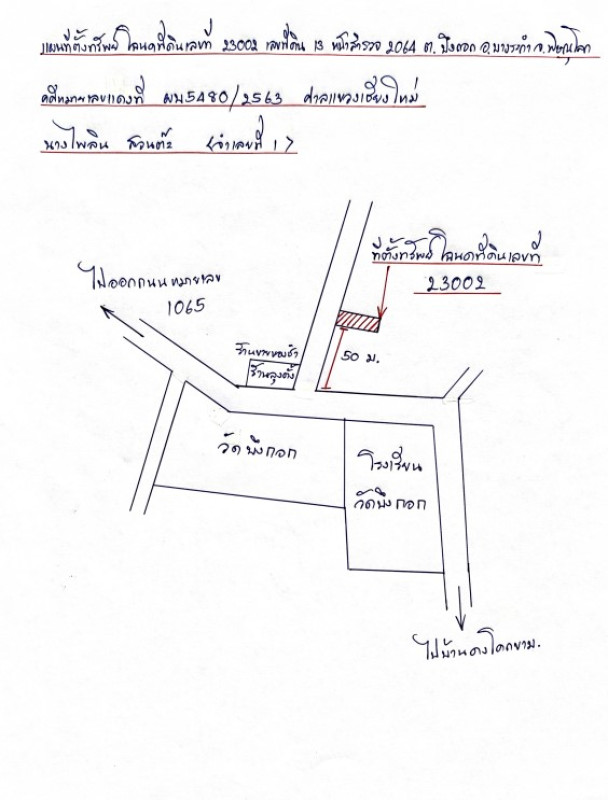 แผนที่ตั้งทรัพย์ โฉนดที่ดินเลขที่ 23002 เลขที่ดิน 13 หน้าสำรวจ 2064 ต. บึงกอก อ.บางระกำ จ.พิษณุโลก
คดีหมายเลขแดงที่ ผบ5480/2563 ศาลแขวงเชียงใหม่
นางไพลิน สวนต๊ะ (จำเลยที่ 1)
ที่ตั้งทรัพย์ โฉนดที่ดินเลขที่
23002
ไปออกถนนหมายเลข
1065
50 ม.
ร้านขายของชำ
ร้านลุงตั้ง
วัดบึงกอก
โรงเรียน
วัดบึงกอก
ไปบ้านดงโคกขาม.